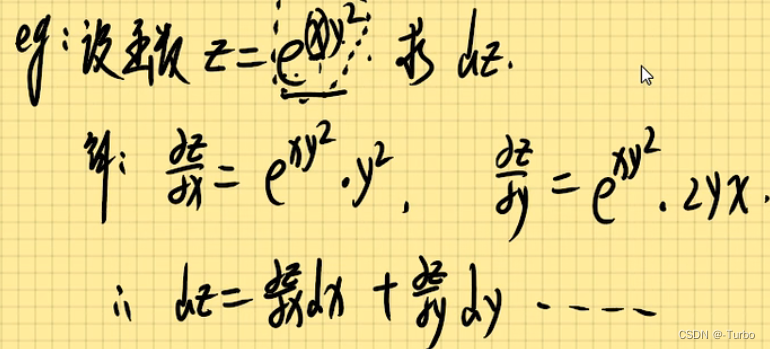 eg:设函数 z=e^{xy^2} 求 dz.
解: ∂z/∂x = e^{xy^2}·y^2, ∂z/∂y = e^{xy^2}·2yx.
∴ dz = ∂z/∂x dx + ∂z/∂y dy -----
CSDN @-Turbo